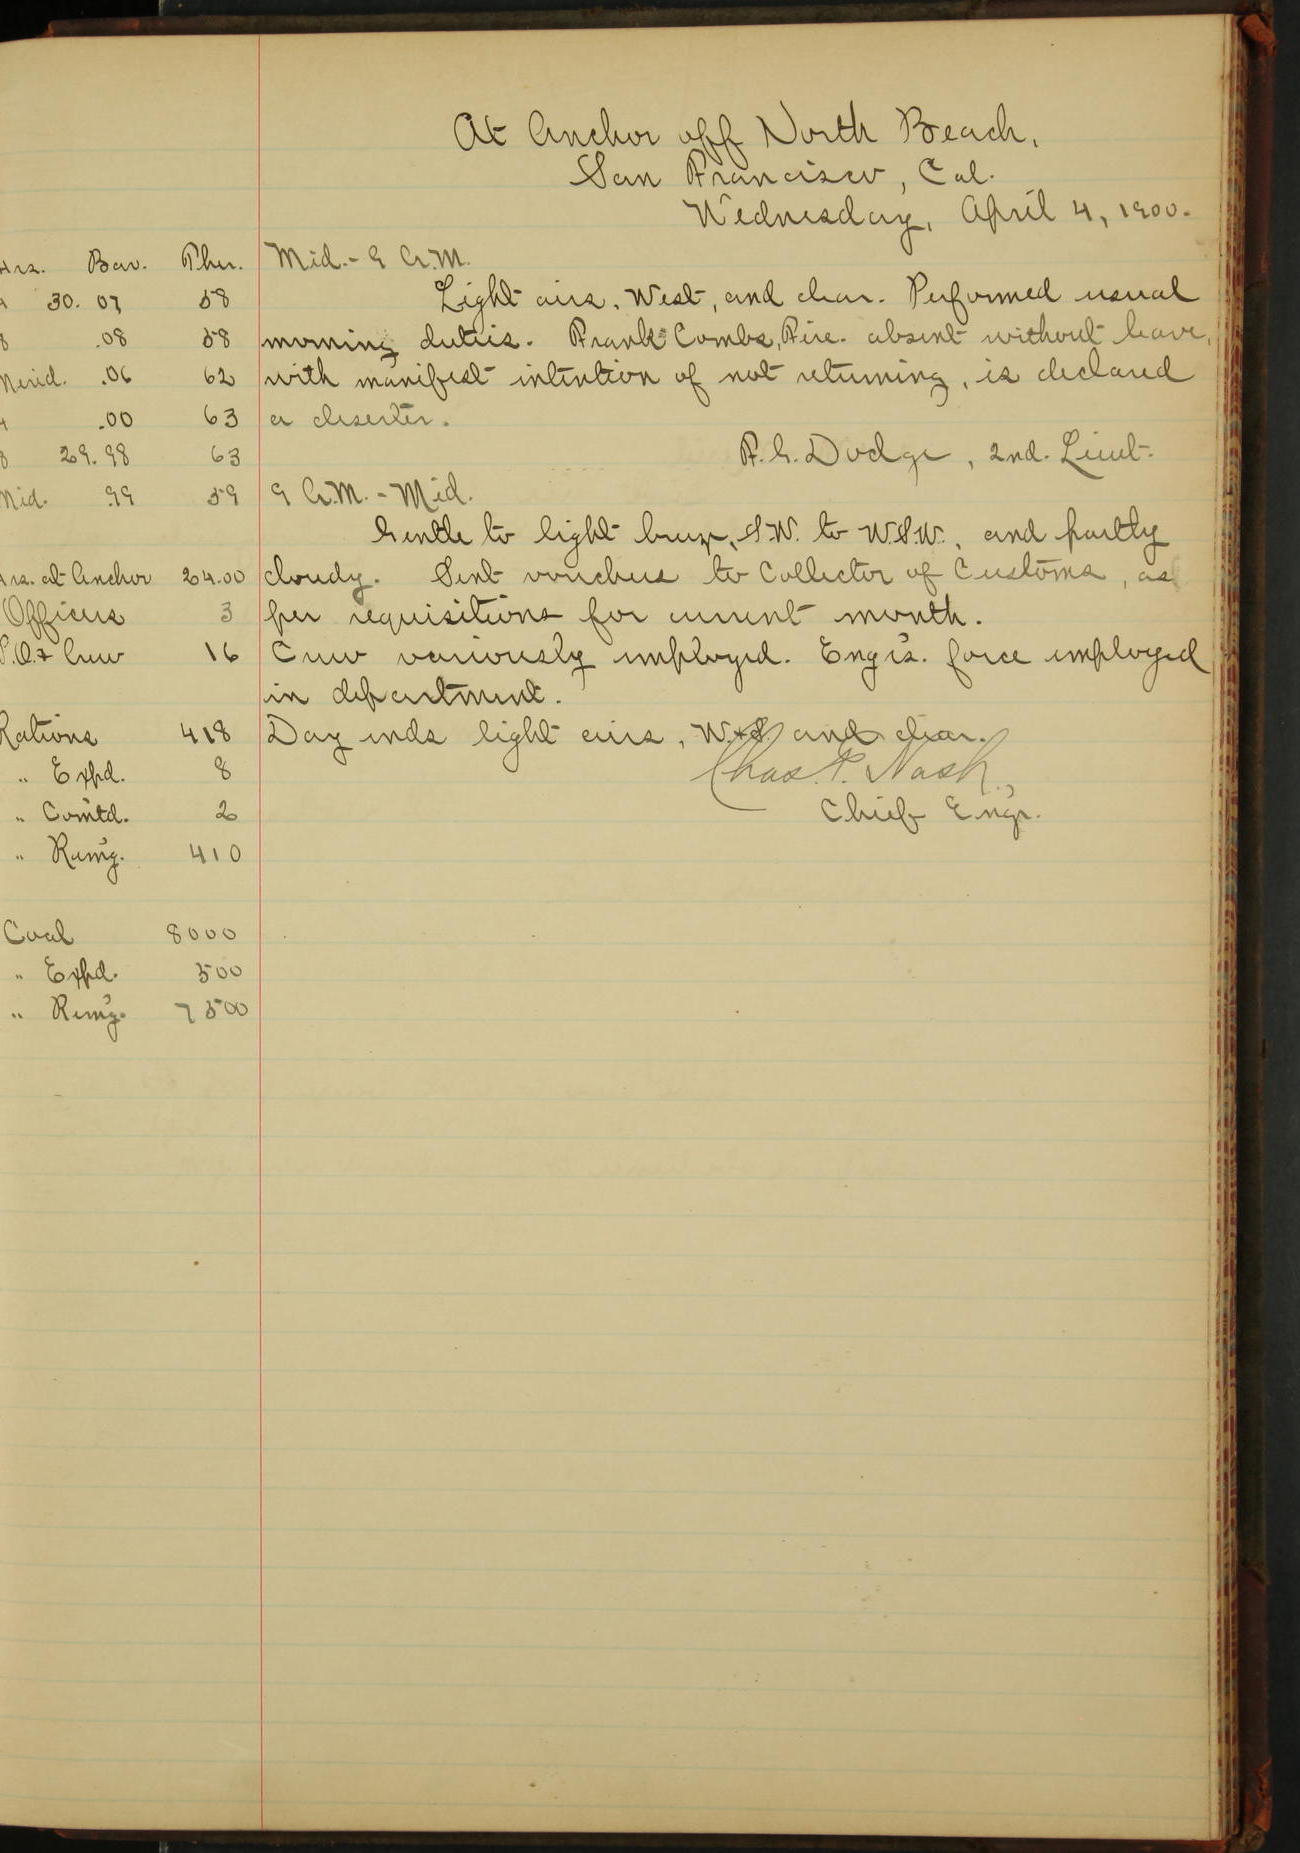 At Anchor off North Beach,
San Francisco, Cal.
Wednesday, April 4, 1900.
Hrs. Bar. Ther.
4 30.07 58
8 .08 58
Merid. .06 62
4 .00 63
8 29.98 63
Mid. .99 59
Hrs. at Anchor 24.00
Officers 3
P.O.& Crew 16
Rations 418
" Expd. 8
" Comtd. 2
" Rem'g. 410
Coal 8000
" Expd. 500
" Rem'g. 7500
Mid. - 9 A.M.
Light airs, West, and clear. Performed usual
morning duties. Frank Combs, Fire. absent without leave,
with manifest intention of not returning, is declared
a deserter.
F.G. Dodge, 2nd. Lieut.
9 A.M. - Mid.
Gentle to light breeze, S.W. to W.S.W., and partly
cloudy. Sent vouchers to Collector of Customs, as
per requisitions for current month.
Crew variously employed. Eng's. force employed
in department.
Day ends light airs, W+S. and clear.
Chas. P. Nash,
Chief Engr.